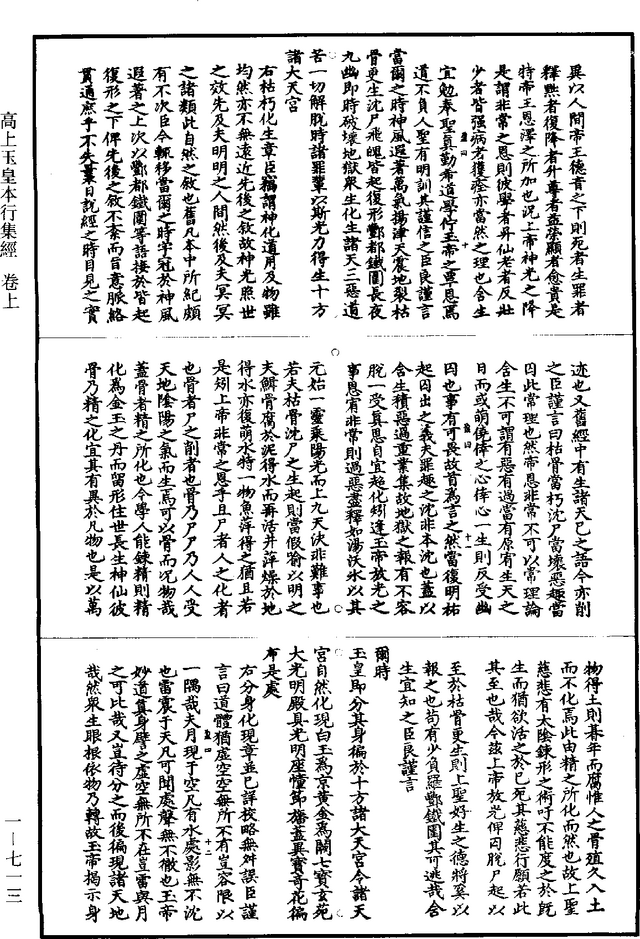 異以人間帝王德音之下則死者生罪者
釋黙者復降者升尊者益榮顯者愈貴是
特帝王恩澤之所加也況上帝神光之降
是謂非常之恩則彼學者升仙老者反壯
少者皆强病者獲瘥亦當然之理也含生
宜勉奉聖真勤希道學倚玉帝之專恩爲
道不負人聖有明訓其謹信之臣良謹言
當爾之時神風遐著萬氣揚津天震地裂枯
骨更生沈尸飛魄皆起復形酆都鐵圍長夜
九幽即時破壞地獄衆生化生諸天三惡道
苦一切解脫時諸罪輩以斯光力得生十方
諸大天宮
右枯朽化生章臣竊謂神化道用及物雖
均然亦不無遠近先後之敘故神光照世
之效先及夫明明之人間然後及夫冥冥
之諸類此自然之敘也舊凡本中所紀頗
有不次臣今輒移當爾之時字冠於神風
遐著之上次以酆都鐵圍等語接於皆起
復形之下俾先後之敘不紊而旨意脈絡
貫通庶乎不失曩日說經之時目見之實
迹也又舊經中有生諸天已之語今亦削
之臣謹言曰枯骨當朽沈尸當壞惡趣當
囚此常理也然帝恩非常不可以常理論
含生不可謂有惡有過當有原宥生天之
日而或萌僥倖之心倖心一生則反受幽
囚也事有可畏故首爲言之然當復明祐
起囚出之義夫罪趣之沈非本沈也蓋以
含生積惡過重業集故地獄之報有不容
脫一受真恩自宜超化矧逢玉帝放光之
事恩宥非常則過惡盡釋如湯沃氷以其
元始一靈乘陽光而上九天決非難事也
若夫枯骨沈尸之生起則當假喻以明之
夫鰕骨腐於泥得水而再活井萍燥於地
得水亦復萌水特一物魚萍得之猶且若
是矧上帝非常之恩乎且尸者人之化者
也骨者尸之削者也骨乃尸尸乃人人受
天地陰陽之氣而生焉可以骨而況物哉
蓋骨者精之所化也今學人能鍊精則精
化爲金玉之丹而留形住世長生神仙彼
骨乃精之化宜其有異於凡物也是以萬
物得土則朞年而腐惟人之骨殖久入土
而不化焉此由精之所化而然也故上聖
慈悲有太陰鍊形之術吁不能度之於旣
生而猶欲活之於已死其慈悲行願若此
其至也哉今兹上帝放光俾囚脫尸起以
至於枯骨更生則上聖好生之德將奚以
報之也苟有少負羅酆鐵圍其可逃哉含
生宜知之臣良謹言
爾時
玉皇即分其身徧於十方諸大天宮令諸天
宮自然化現白玉爲京黃金爲闕七寶玄苑
大光明殿具光明座幢節旛蓋異寶奇花徧
布是處
右分身化現章並已詳校略無舛誤臣謹
言曰道體猶虛空空無所不有豈容限以
一隅哉夫月現于空凡有水處影無不沈
也雷震于天凡可聞處聲無不徹也玉帝
妙道真身譬之虛空無所不在豈雷與月
之可比哉又豈待分之而後徧現諸天地
哉然衆生眼根依物乃轉故玉帝揭示身
高上玉皇本行集經 卷上
一—七一三